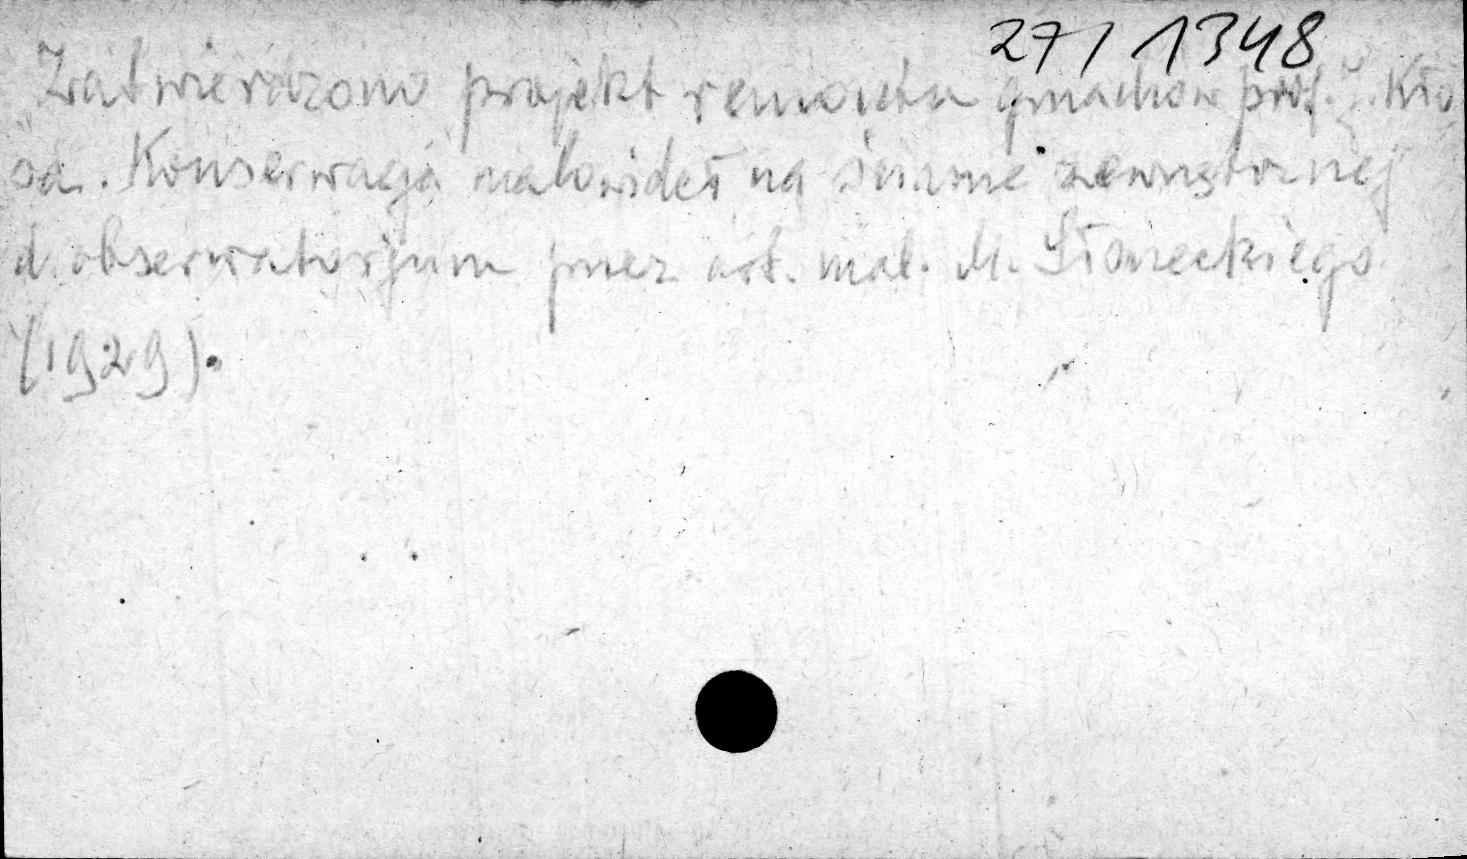 27/1348
Zatwierdzono projekt remontu gmachów prof. J. Kło
sa. Konserwacja malowideł na ścianie zewnętrznej
d. obserwatorjum przez art. mal. M. Słoneckiego
(1929).